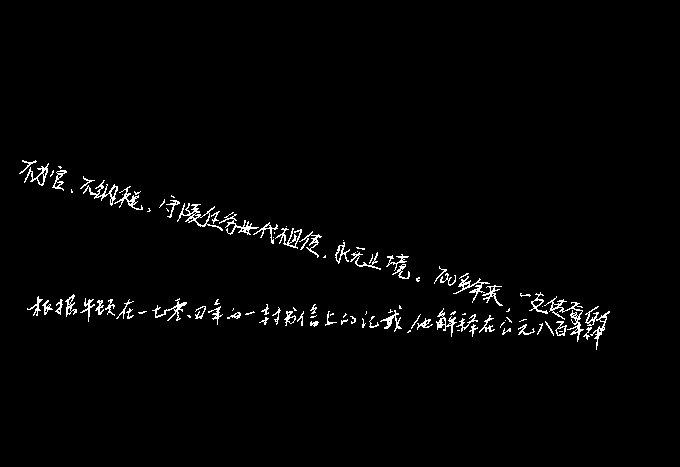 不为官、不纳税。守陵任务世代相传,永无止境。700多年来,一支
根据牛顿在一七零四年的一封书信上的记载,他解释在公元八百年神